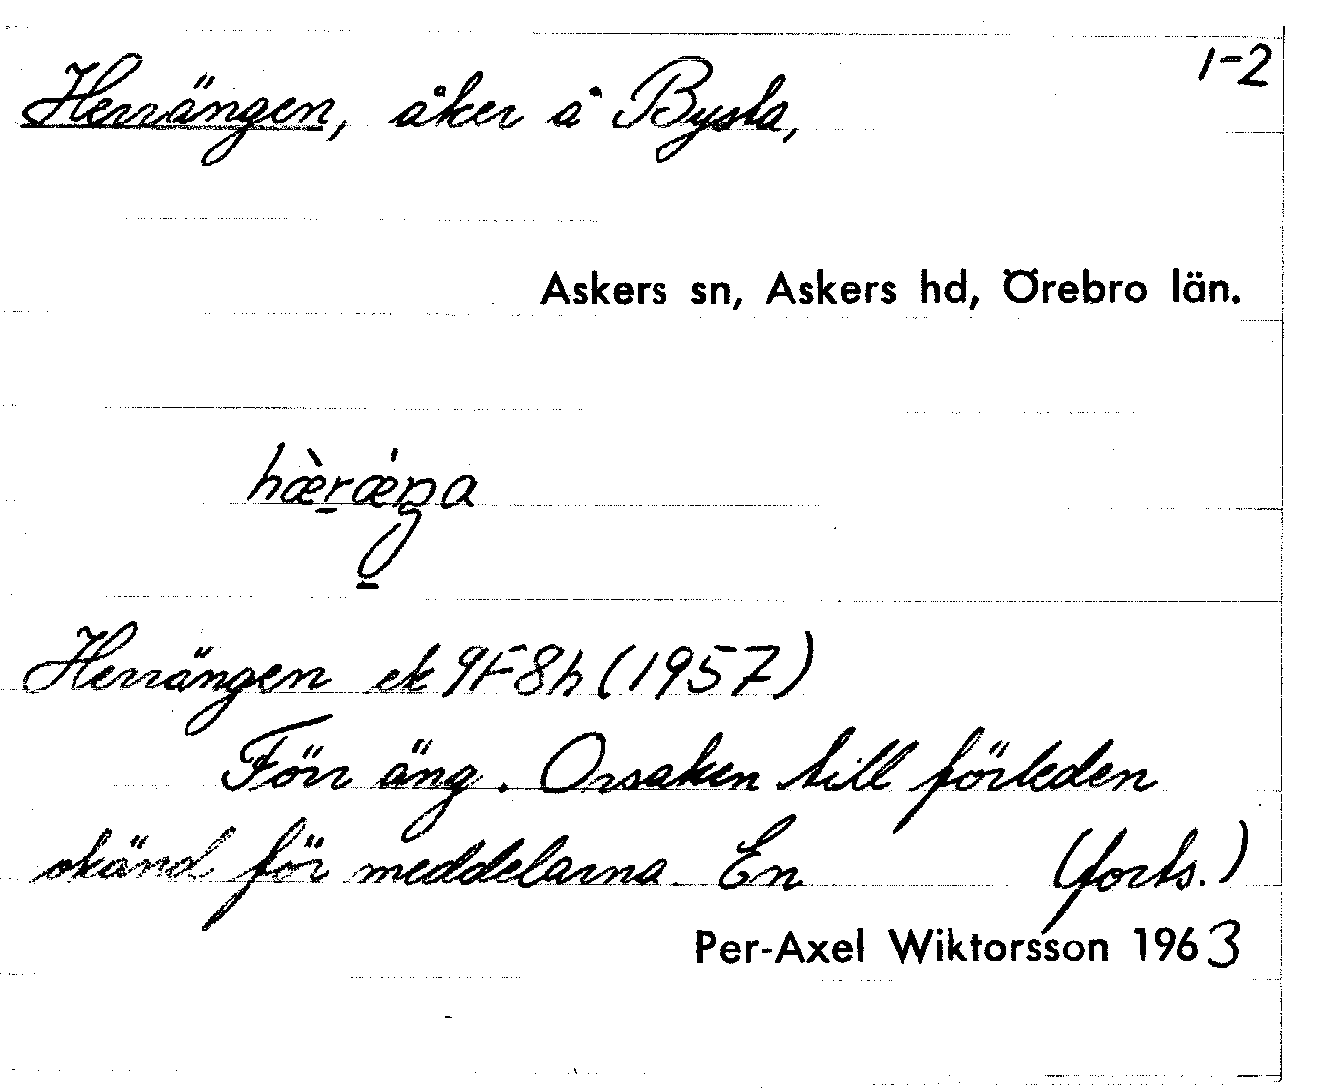 1-2
Herrängen, åker å Bysta,
Askers sn, Askers hd, Örebro län.
hæ̀rǽŋa
Herrängen ek 9F8h (1957)
Förr äng. Orsaken till förleden
okänd för meddelarna. En (forts.)
Per-Axel Wiktorsson 1963